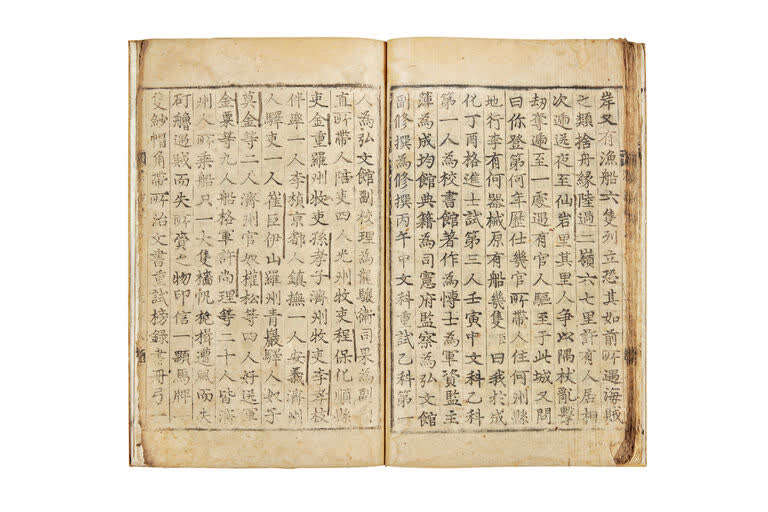 岸又有漁船六隻列立恐其如前所遇海賊
之類捨舟緣陸過二嶺六七里許有人居相
次逓送夜至仙岩里其里人争以隅杖亂擊
刼奪遞至一處遇有官人驅至于此城又問
曰你登第何年歷仕幾官所帶人住何州縣
地行李有何器械原有船幾隻曰我於成
化丁酉格進士試第三人壬寅中文科乙科
第一人為校書館著作為博士為軍資監主
簿為成均館典籍為司憲府監察為弘文館
副修撰為修撰丙午中文科重試乙科第一
人為弘文館副校理為龍驤衛司果為副
直所帶人陪吏四人光州牧吏程保化順縣
吏金重羅州牧吏孫孝子濟州牧吏李孝枝
伴率一人李楨京都人鎮撫一人安義濟州
人驛吏一人崔巨伊山羅州青巖驛人奴子
莫金等二人濟州官奴權松等四人好送軍
金粟等九人船格軍許尚理等二十人皆濟
州人所乘船只一大隻檣帆桅楫遭風而失
矴艫遇賊而失所賫之物印信一顆馬牌
隻紗帽角帶所治文書重試榜錄書册弓一